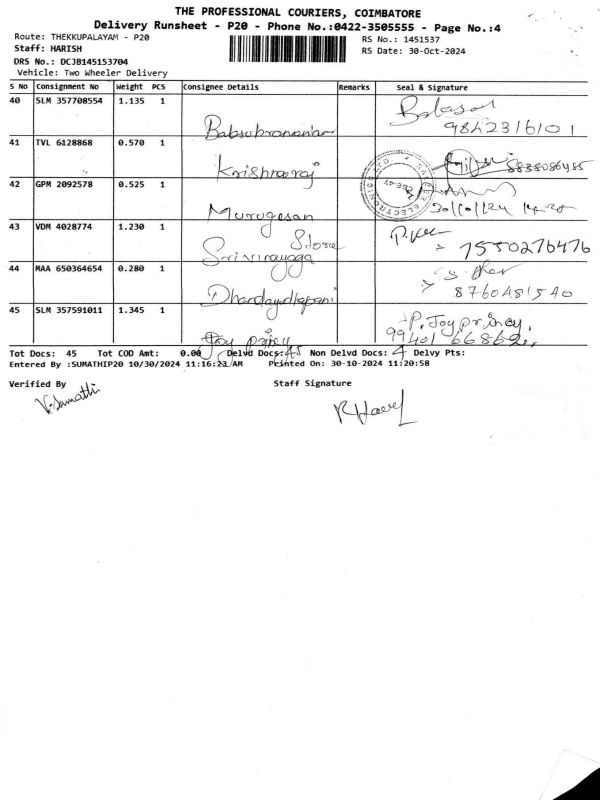 THE PROFESSIONAL COURIERS, COIMBATORE
Delivery Runsheet - P20 - Phone No.:0422-3505555 - Page No.:4
Route: THEKKUPALAYAM - P20
RS No.: 1451537
Staff: HARISH
RS Date: 30-Oct-2024
DRS No.: DCJB145153704
Vehicle: Two Wheeler Delivery
S No Consignment No Weight PCS Consignee Details Remarks Seal & Signature
40 SLM 357708554 1.135 1
Babsubramanian 9842316101
41 TVL 6128868 0.570 1
Krishnaraj 8838086485
42 GPM 2092578 0.525 1
Murugesan 30/10/24 14.20
43 VDM 4028774 1.230 1
Srivinayaga Store 7550276476
44 MAA 650364654 0.280 1
Dhandayudhapani 8760481540
45 SLM 357591011 1.345 1
Joy princy P. Joy princy, 99401 66862
Tot Docs: 45 Tot COD Amt: 0.00 Delvd Docs: 45 Non Delvd Docs: 4 Delvy Pts:
Entered By :SUMATHIP20 10/30/2024 11:16:23 AM Printed On: 30-10-2024 11:20:58
Verified By Staff Signature
V. Sumathi